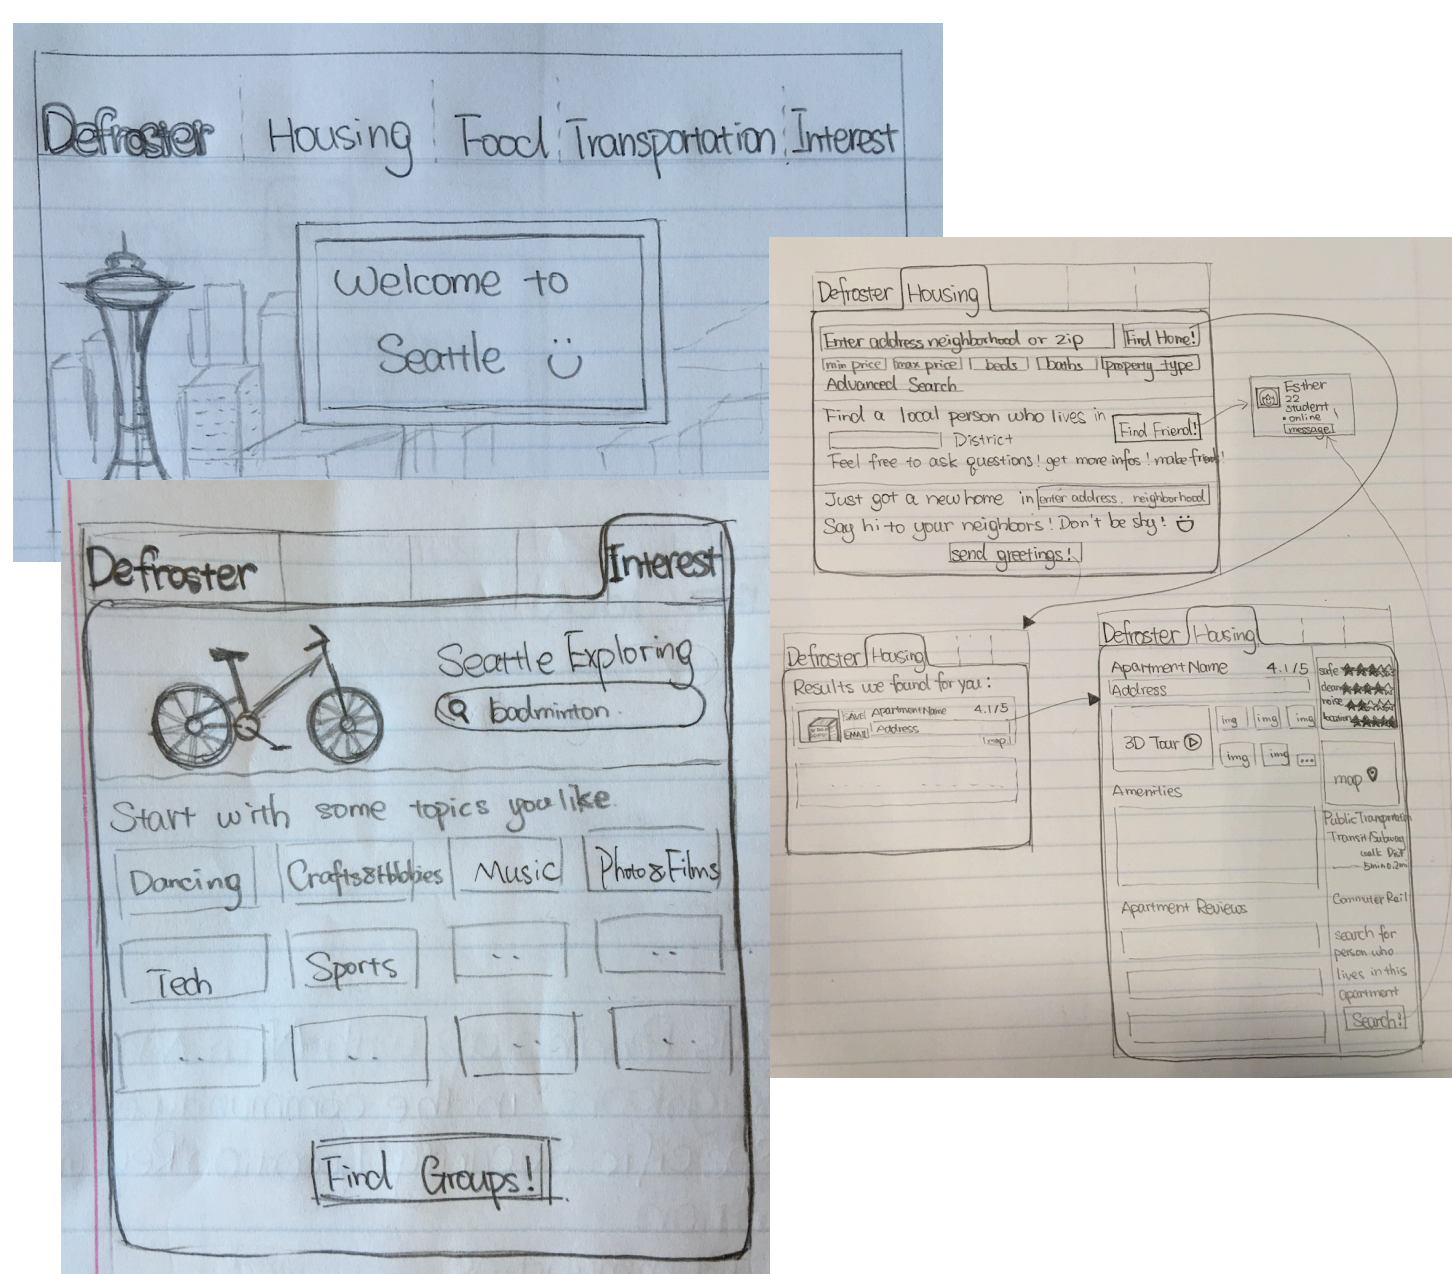 Defroster Housing Food Transportation Interest
Welcome to
Seattle
Defroster Interest
Seattle Exploring
badminton
Start with some topics you like.
Dancing Crafts&Hobbies Music Photo&Films
Tech Sports
Find Groups!
Defroster Housing
Enter address neighborhood or zip Find Home!
min price max price beds baths property type
Advanced Search
Find a local person who lives in Find Friend!
District
Feel free to ask questions! get more infos! make friend!
Just got a new home in enter address, neighborhood
Say hi to your neighbors! Don't be shy!
send greetings!
Esther
22
student
• online
message
Defroster Housing
Results we found for you:
SAVE Apartment Name 4.1/5
EMAIL Address
map
Defroster Housing
Apartment Name 4.1/5
Address
3D Tour
img img img
img img ...
Amenities
Apartment Reviews
safe
clean
noise
location
map
Public Transportation
Transit/Subway
walk Dist
5min 0.2m
Commuter Rail
search for
person who
lives in this
apartment
Search!